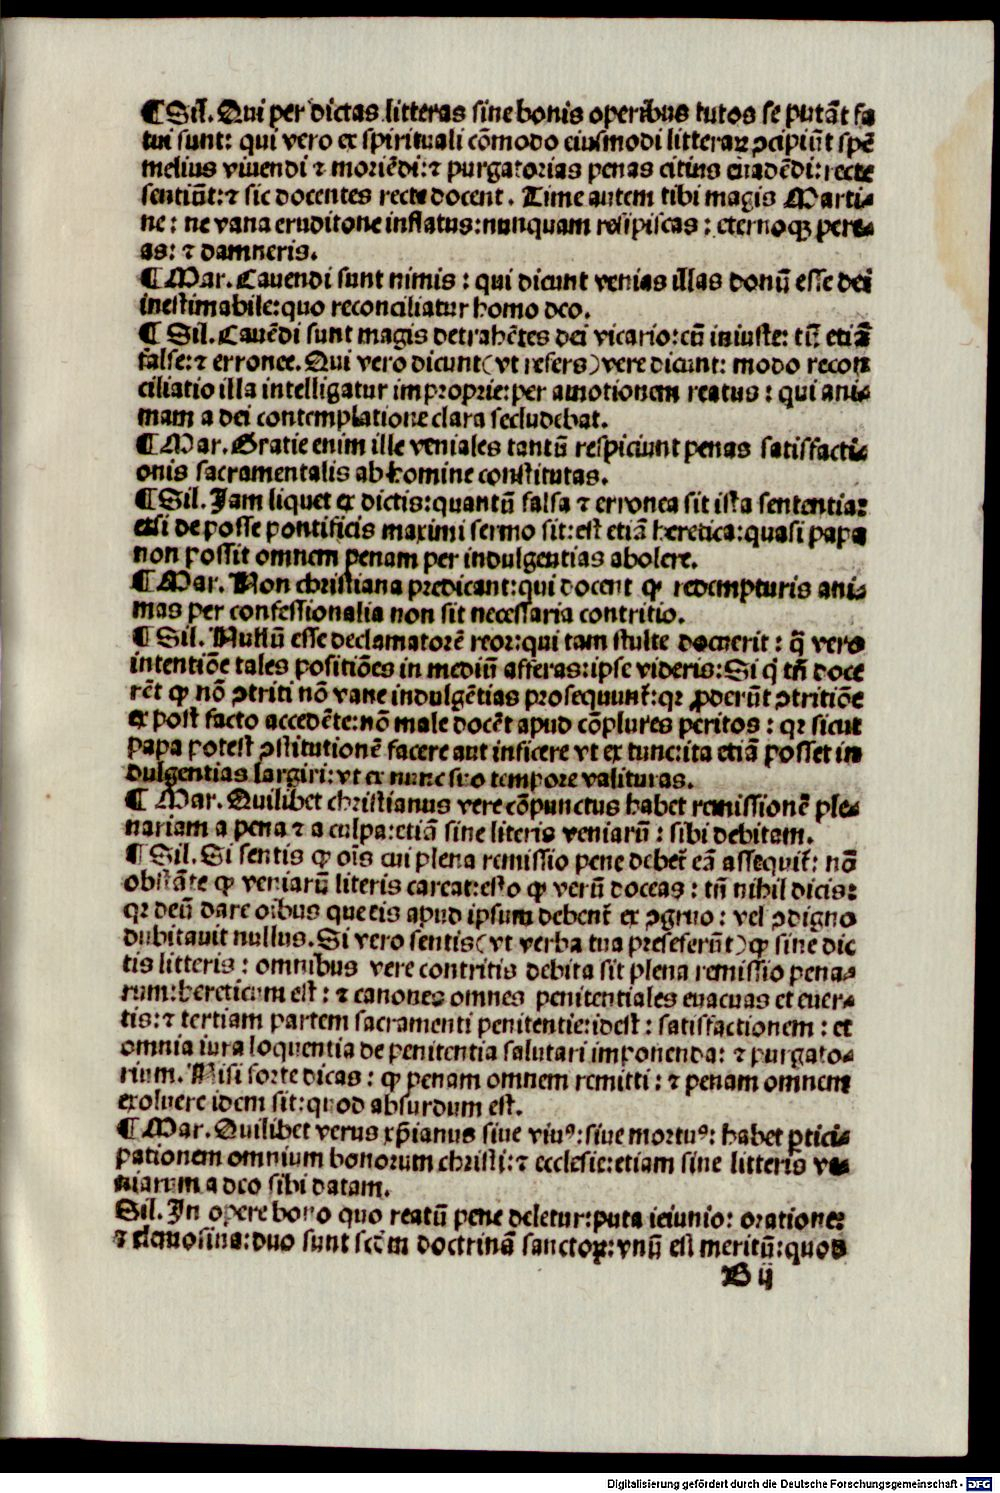 ¶ Sil. Qui per dictas litteras sine bonis operibus tutos se putāt fa
tui sunt: qui vero ex spirituali cōmodo eiusmodi litteraꝝ ꝯcipiūt spē
melius viuendi ⁊ moriēdi:⁊ purgatorias penas citius euadēdi:recte
sentiūt:⁊ sic docentes recte docent. Time autem tibi magis Marti⸗
ne: ne vana eruditone inflatus:nunquam resipiscas: eternoqꝫ pere⸗
as: ⁊ damneris.
¶ Mar. Cauendi sunt nimis: qui dicunt venias illas donū esse dei
inestimabile:quo reconciliatur homo deo.
¶ Sil. Cauēdi sunt magis detrahētes dei vicario:cū iniuste: tū etiā
false:⁊ erronee. Qui vero dicunt(vt refers)vere dicunt: modo recon
ciliatio illa intelligatur improprie:per amotionem reatus: qui ani⸗
mam a dei contemplatione clara secludebat.
¶ Mar. Gratie enim ille veniales tantū respiciunt penas satisfacti⸗
onis sacramentalis ab homine constitutas.
¶ Sil. Jam liquet ex dictis:quantū falsa ⁊ erronea sit ista sententia:
etsi de posse pontificis maximi sermo sit:est etiā heretica:quasi papa
non possit omnem penam per indulgentias abolere.
¶ Mar. Non christiana predicant:qui docent ꝙ redempturis ani⸗
mas per confessionalia non sit necessaria contritio.
¶ Sil. Nullū esse declamatorē reor:qui tam stulte docuerit: q̄ vero
intentiōe tales positiōes in mediū afferas:ipse videris:Si qͥ tn̄ doce
rēt ꝙ nō ꝯtriti nō vane indulgētias prosequunt᷑:qꝛ ꝓderūt ꝯtritiōe
ex post facto accedēte:nō male docēt apud cōplures peritos: qꝛ sicut
papa potest ꝯstitutionē facere aut inficere vt ex tunc:ita etiā posset in
dulgentias largiri:vt ex nunc suo tempore valituras.
¶ Mar. Quilibet christianus vere cōpunctus habet remissionē ple⸗
nariam a pena ⁊ a culpa:etiā sine literis veniarū: sibi debitam.
¶ Sil. Si sentis ꝙ oīs cui plena remissio pene debet᷑ eā assequit᷑: nō
obstāte ꝙ veniarū literis careat:esto ꝙ verū doceas: tn̄ nihil dicis:
qꝛ deū dare oībus que eis apud ipsum debent᷑ ex ꝯgruo: vel ꝯdigno
dubitauit nullus. Si vero sentis(vt verba tua preseferūt)ꝙ sine dic
tis litteris: omnibus vere contritis debita sit plena remissio pena⸗
rum:hereticum est: ⁊ canones omnes penitentiales euacuas et euer⸗
tis:⁊ tertiam partem sacramenti penitentie:idest: satisfactionem: et
omnia iura loquentia de penitentia salutari imponenda: ⁊ purgato⸗
rium. Nisi forte dicas: ꝙ penam omnem remitti: ⁊ penam omnem
exoluere idem sit:quod absurdum est.
¶ Mar. Quilibet verus xp̄ianus siue viuꝰ:siue mortuꝰ: habet ꝑtici⸗
pationem omnium bonorum christi:⁊ ecclesie:etiam sine litteris ve⸗
niarum a deo sibi datam.
Sil. In opere bono quo reatū pene deletur:puta ieiunio: oratione:
⁊ elemosina:duo sunt scd̄m doctrinā sanctoꝝ:vnū est meritū:quod
B ij
Digitalisierung gefördert durch die Deutsche Forschungsgemeinschaft - DFG